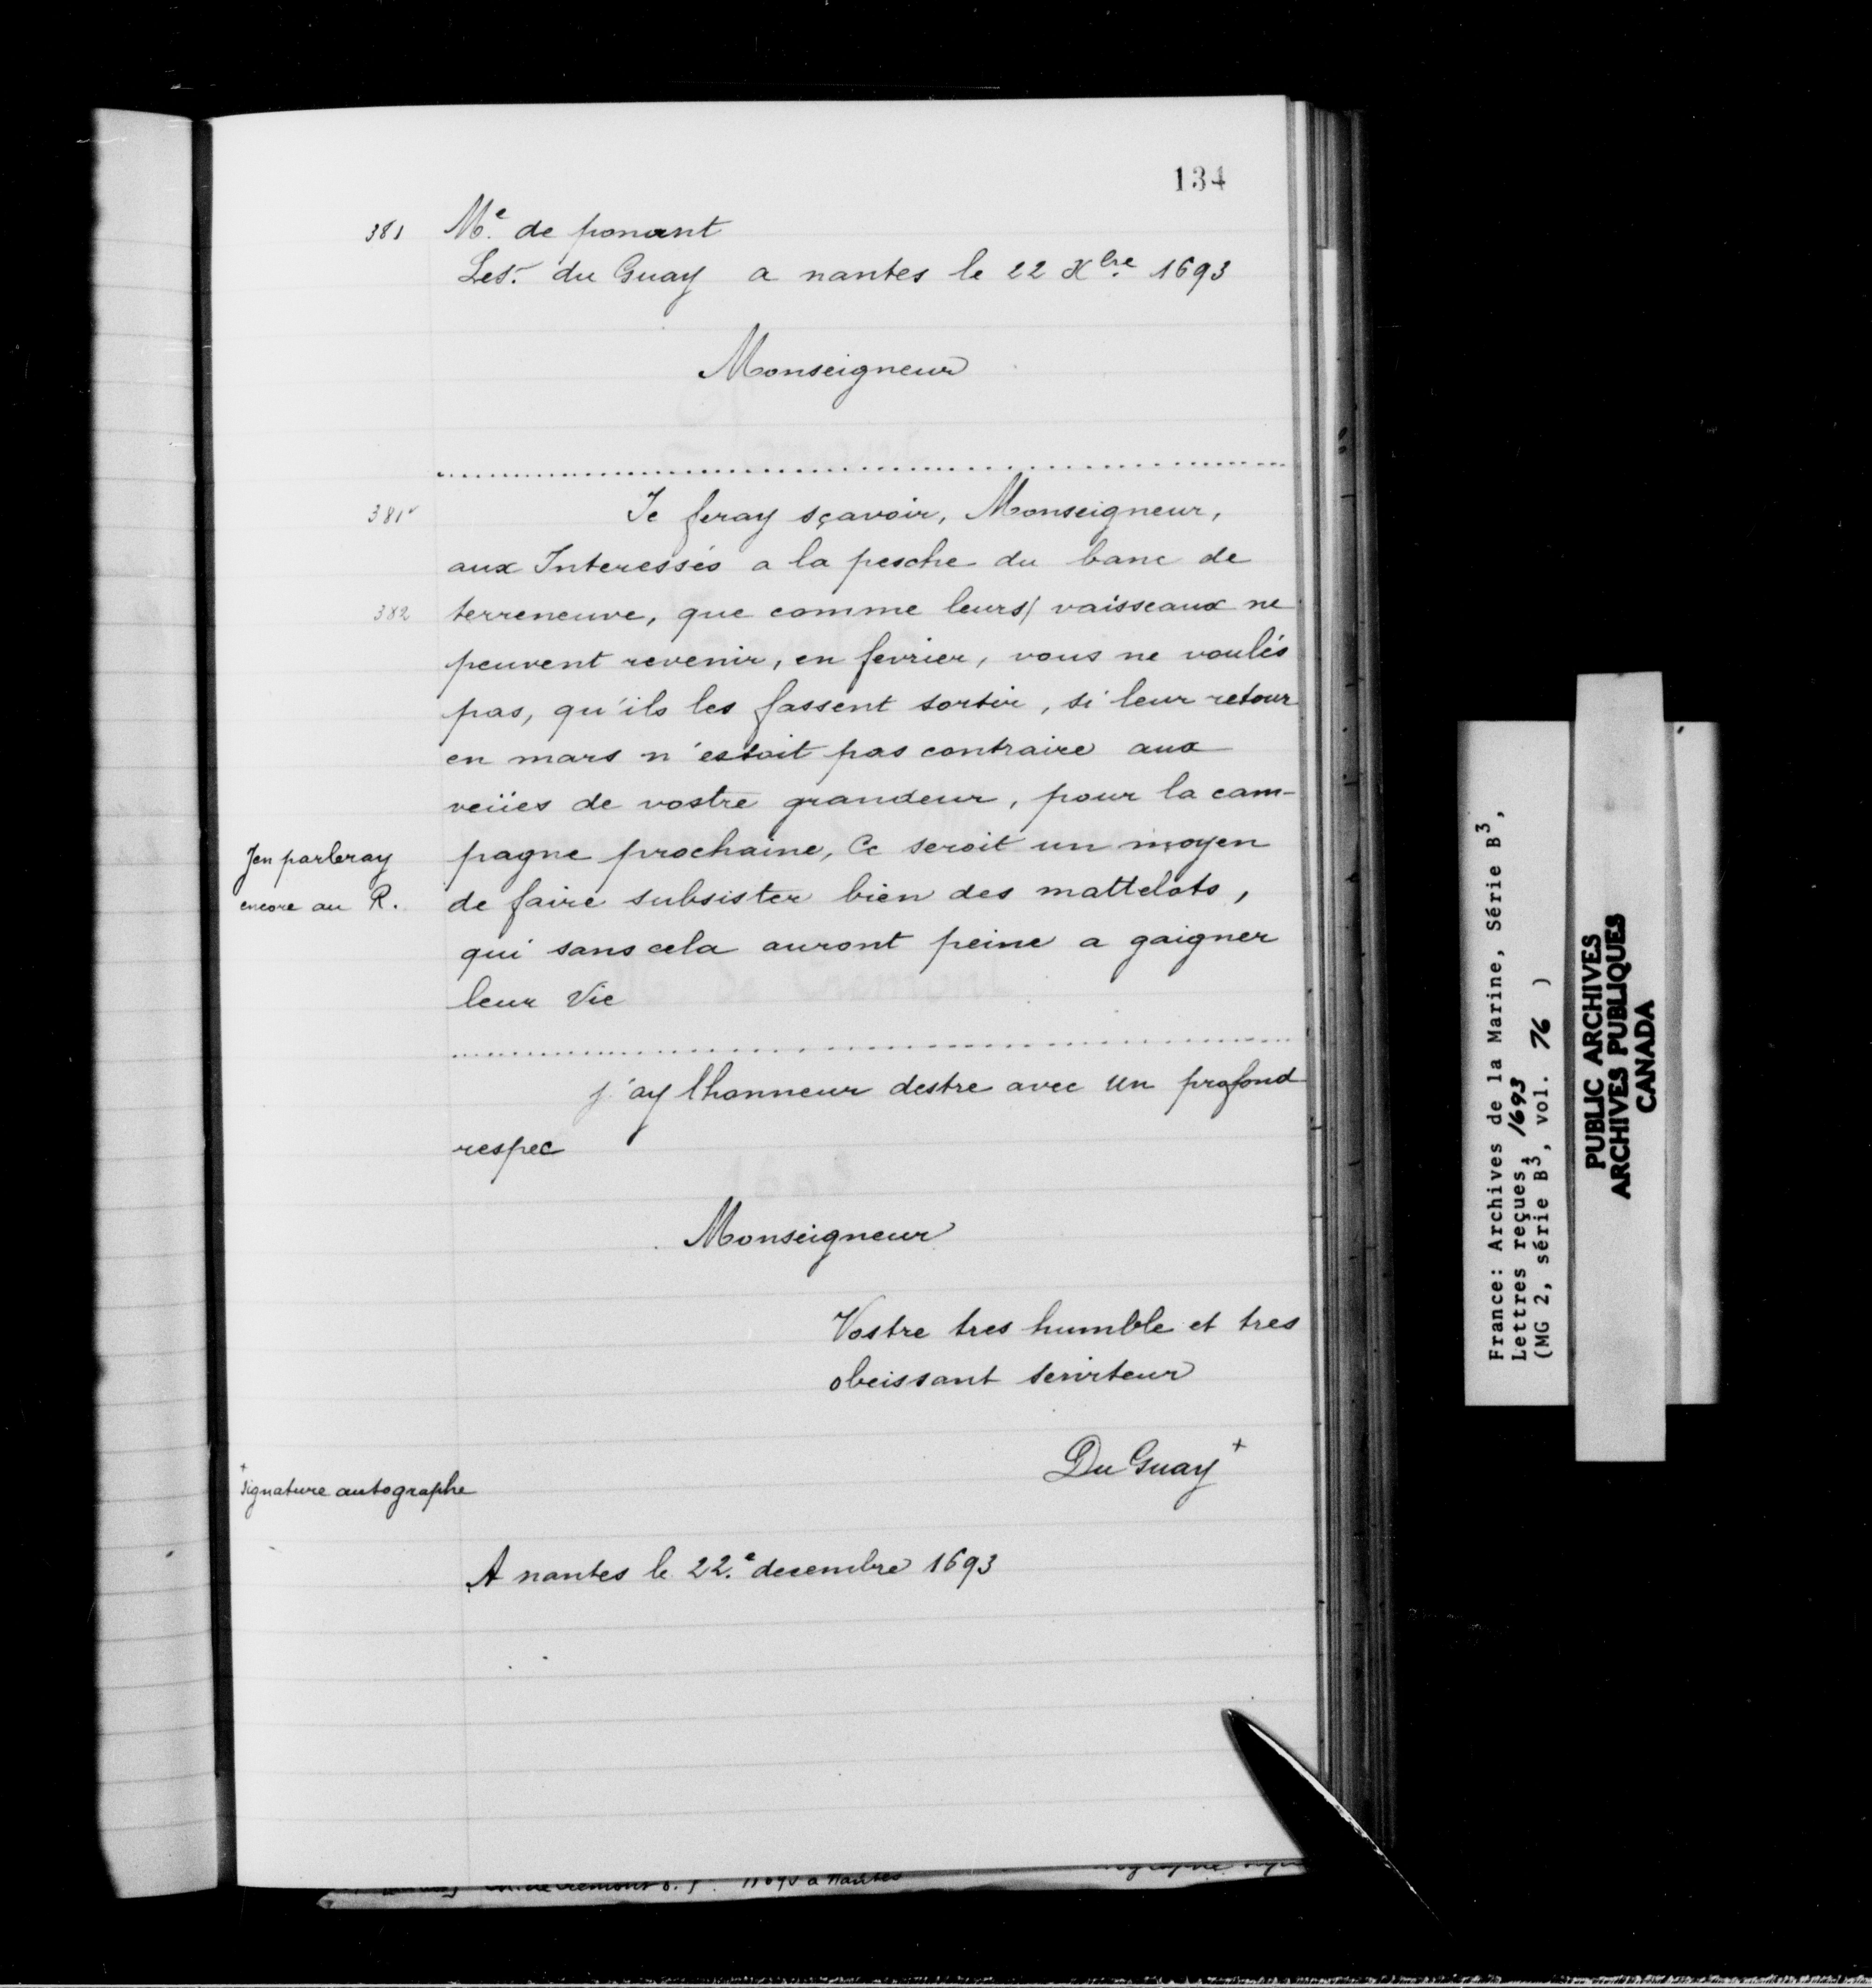 134
381 Me. de ponant
Les. du Guay a nantes le 22 Xbre 1693
Monseigneur
381v Je feray sçavoir, Monseigneur,
aux Interessés a la pesche du banc de
382 terreneuve, que comme leurs/ vaisseaux ne
peuvent revenir, en fevrier, vous ne voulés
pas, qu'ils les fassent sortir, si leur retour
en mars n'estoit pas contraire aux
veües de vostre grandeur, pour la cam-
pagne prochaine, Ce seroit un moyen
Jen parleray
encore au R.
de faire subsister bien des mattelots,
qui sans cela auront peine a gaigner
leur Vie
j'ay lhonneur destre avec un profond
respec
Monseigneur
Vostre tres humble et tres
obeissant serviteur
Du Guay +
+ signature autographe
A nantes le 22.e decembre 1693
France: Archives de la Marine, Série B3,
Lettres reçues, 1693
(MG 2, série B3, vol. 76 )
PUBLIC ARCHIVES
ARCHIVES PUBLIQUES
CANADA